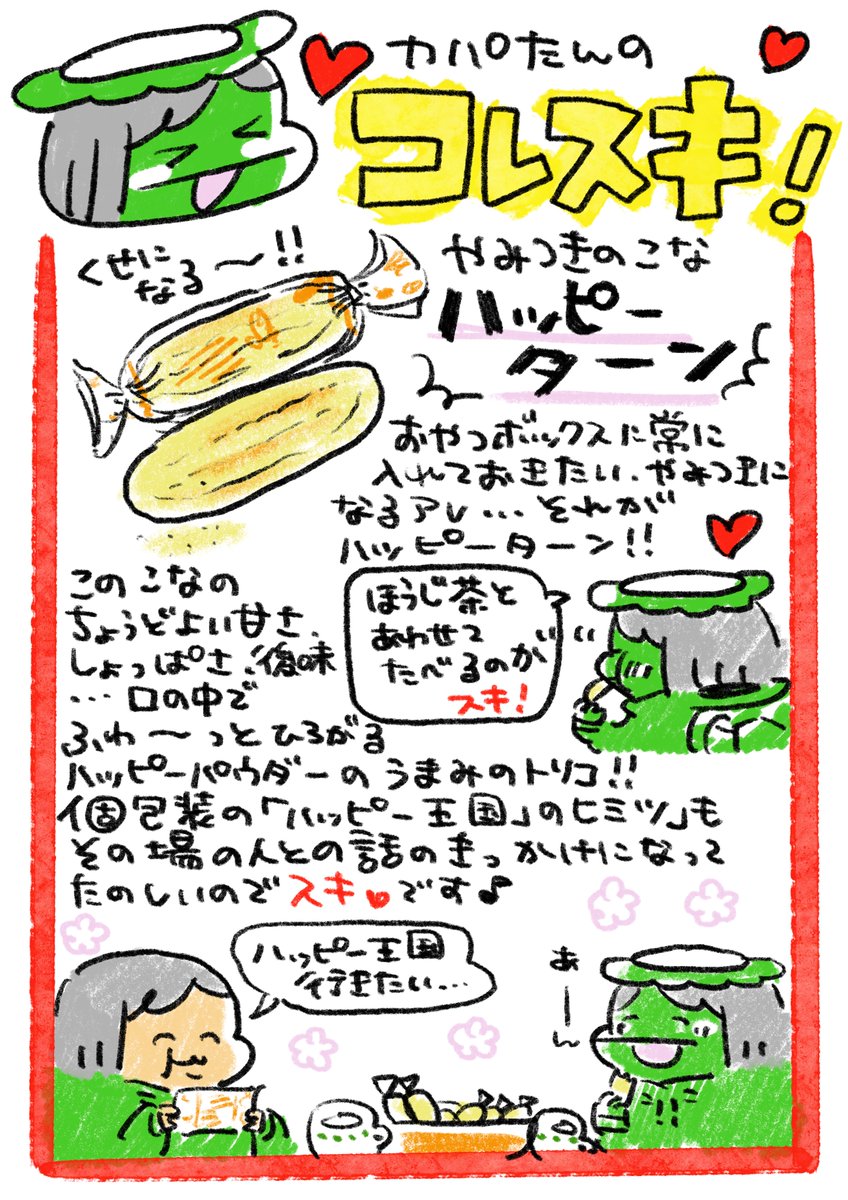 カパたんの
コレスキ!
くせに
なる〜!!
やみつきのこな
ハッピー
ターン
おやつボックスに常に
入れておきたい、やみつきに
なるアレ…それが
ハッピーターン!!
この こなの
ちょうどよい甘さ、
しょっぱさ、後味
…口の中で
ふわ〜っと ひろがる
ハッピーパウダーの うまみのトリコ!!
ほうじ茶と
あわせて
たべるのが
スキ!
個包装の「ハッピー王国」のヒミツ」も
その場の人との話のきっかけになって
たのしいのでスキです♪
ハッピー王国
行きたい…
あーん